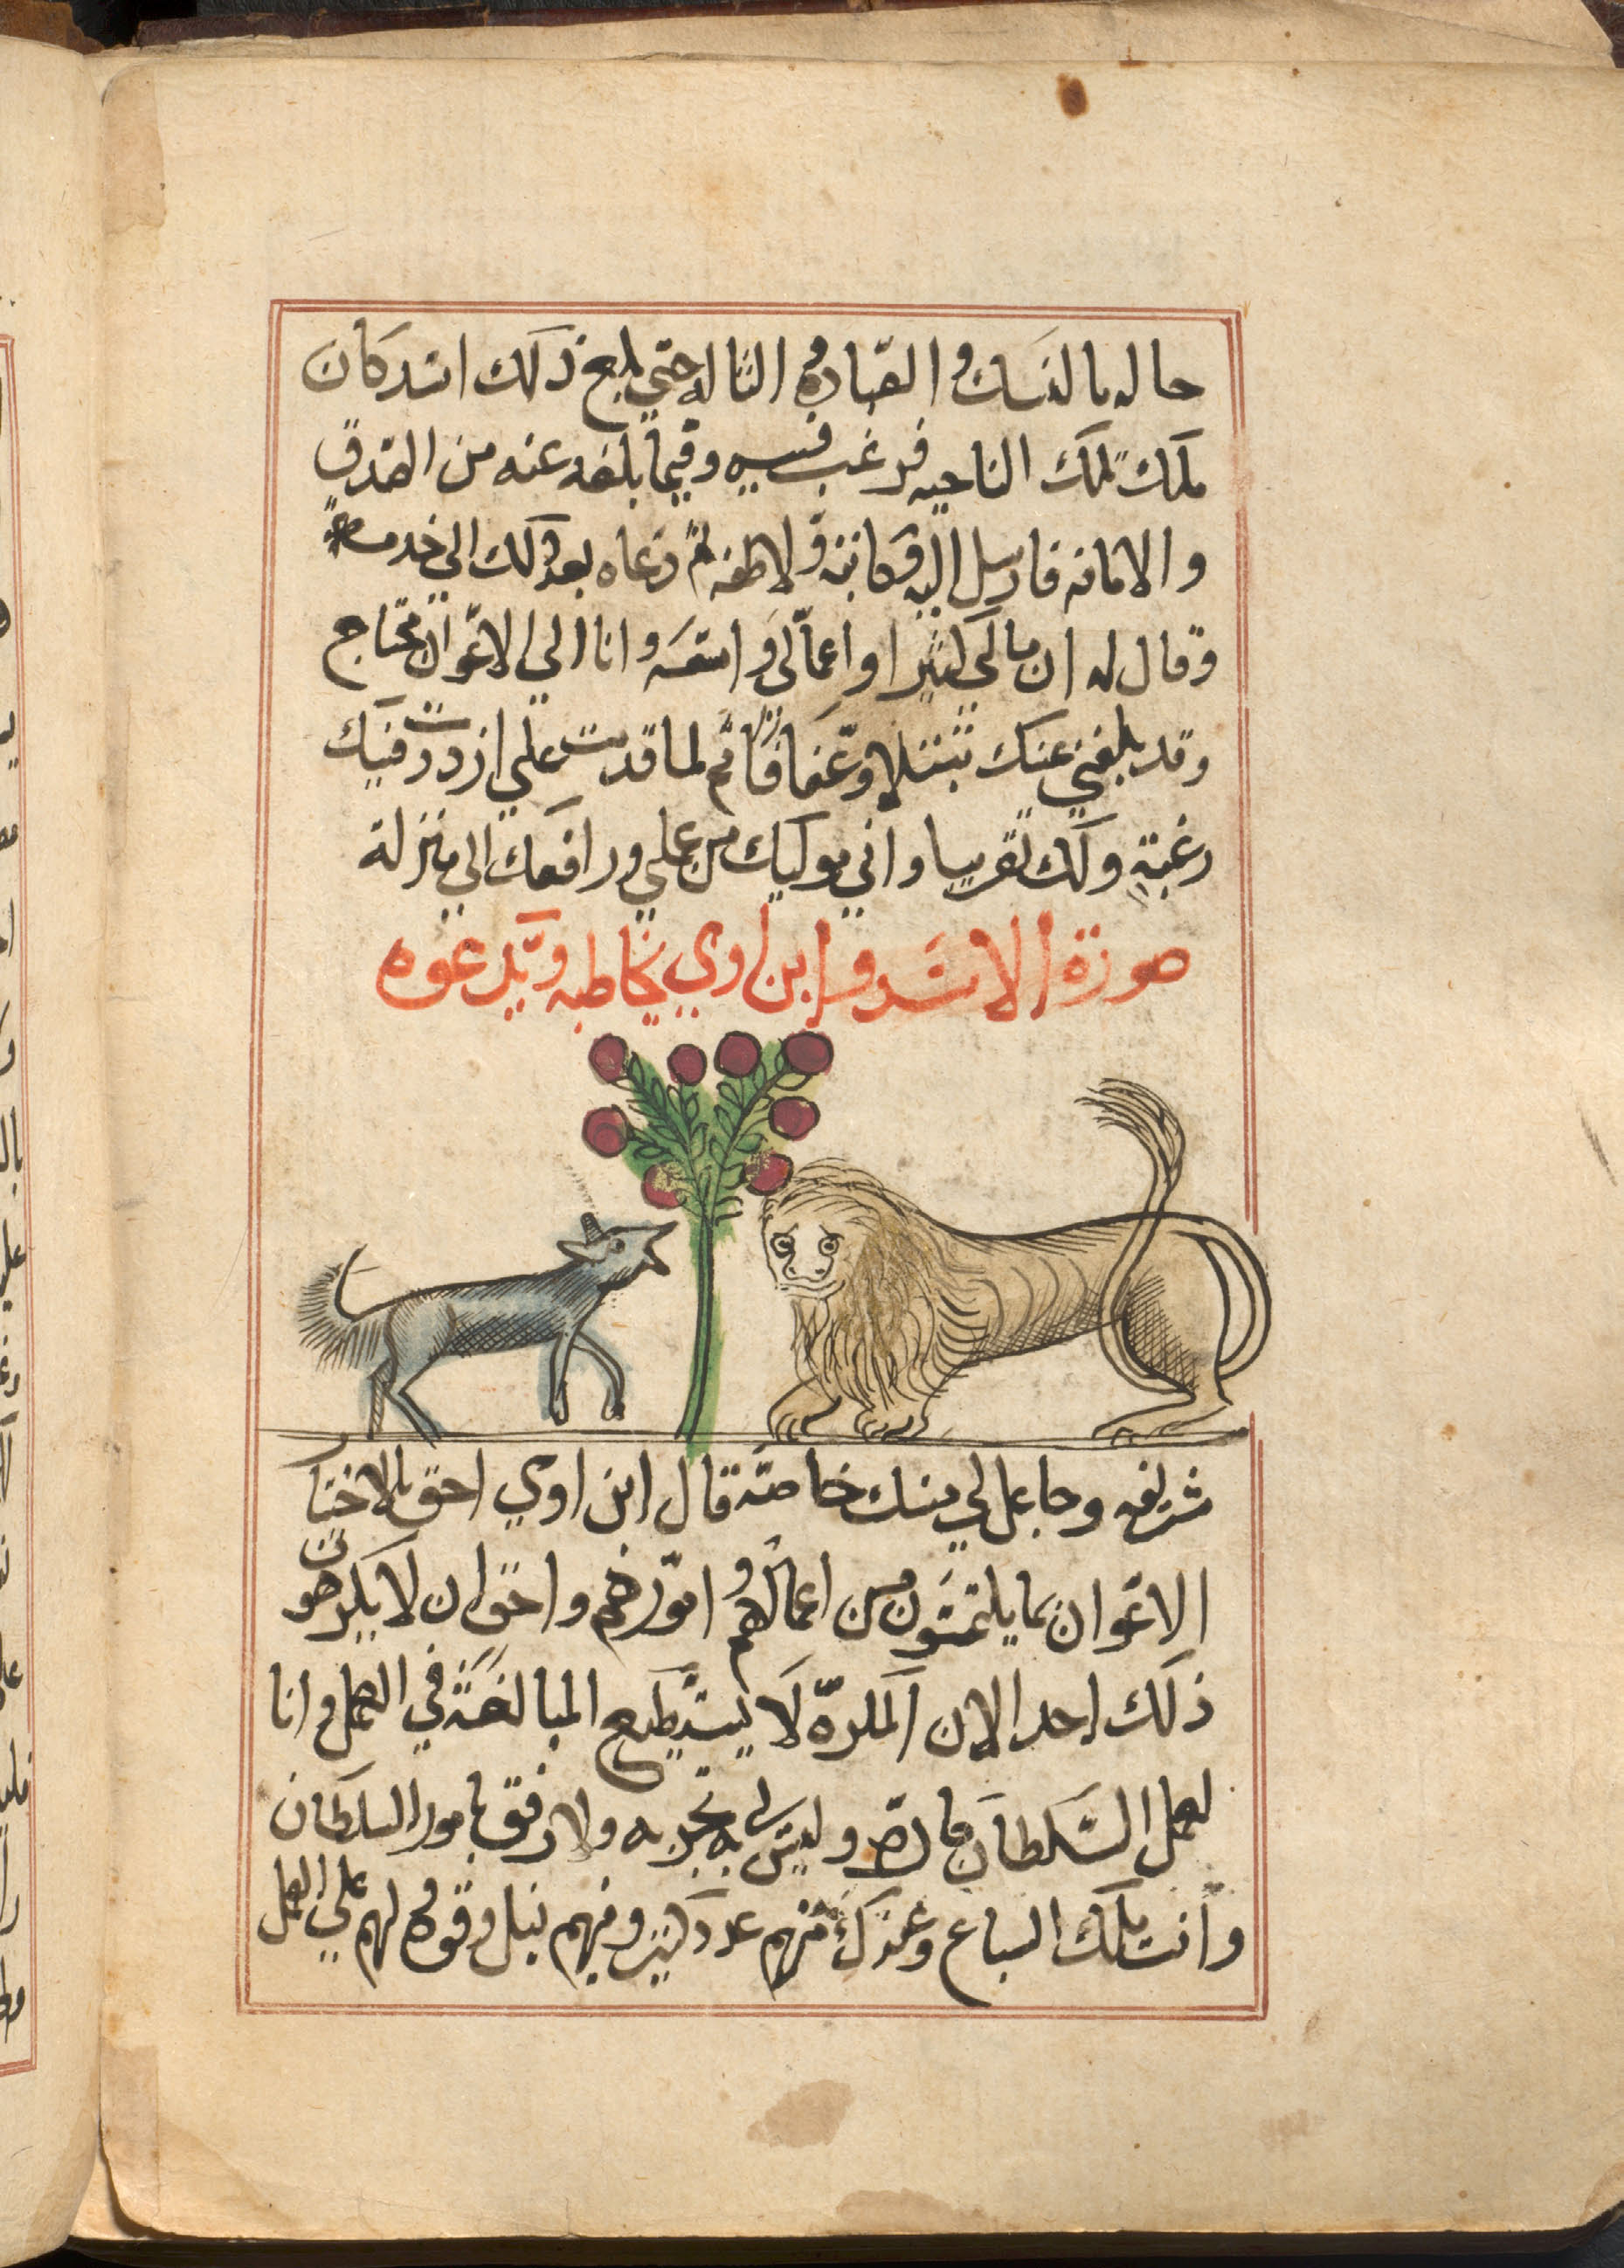 حاله بالنسك والعباده والتاله حتي بلغ ذلك اسد كان
ملك تلك الناحيه فرغب فيه وفيما بلغه عنه من الصدق
والامانه فارسل اليه وكاتبه ولاطفه ثم دعاه بعد ذلك الي خدمته
وقال له ان مالي كثيرا واعمالي واسعه وانا الي الاعوان محتاج
وقد بلغني عنك تبتلا وعفافا ثم لما قدمت علي ازددت فيك
رغبة ولك تقريبا واني موليك من عملي ورافعك الي منزلة
صورة الاسد وابن اوي يخاطبه ويدعوه
شريفه وجاعل لي منك خاصة قال ابن اوي احق بالاختيار
الاعوان بما يلتمسون من اعمالهم وامورهم واحق ان لا يكرهون
ذلك احد الان المكره لا يستطيع المبالغة في العمل وانا
لعمل السلطان كاره وليس لي به تجربه ولا رفق بامور السلطان
وانت ملك السباع وعندك منهم عدد كثير وفيهم نبل وقوه ولهم علي العمل